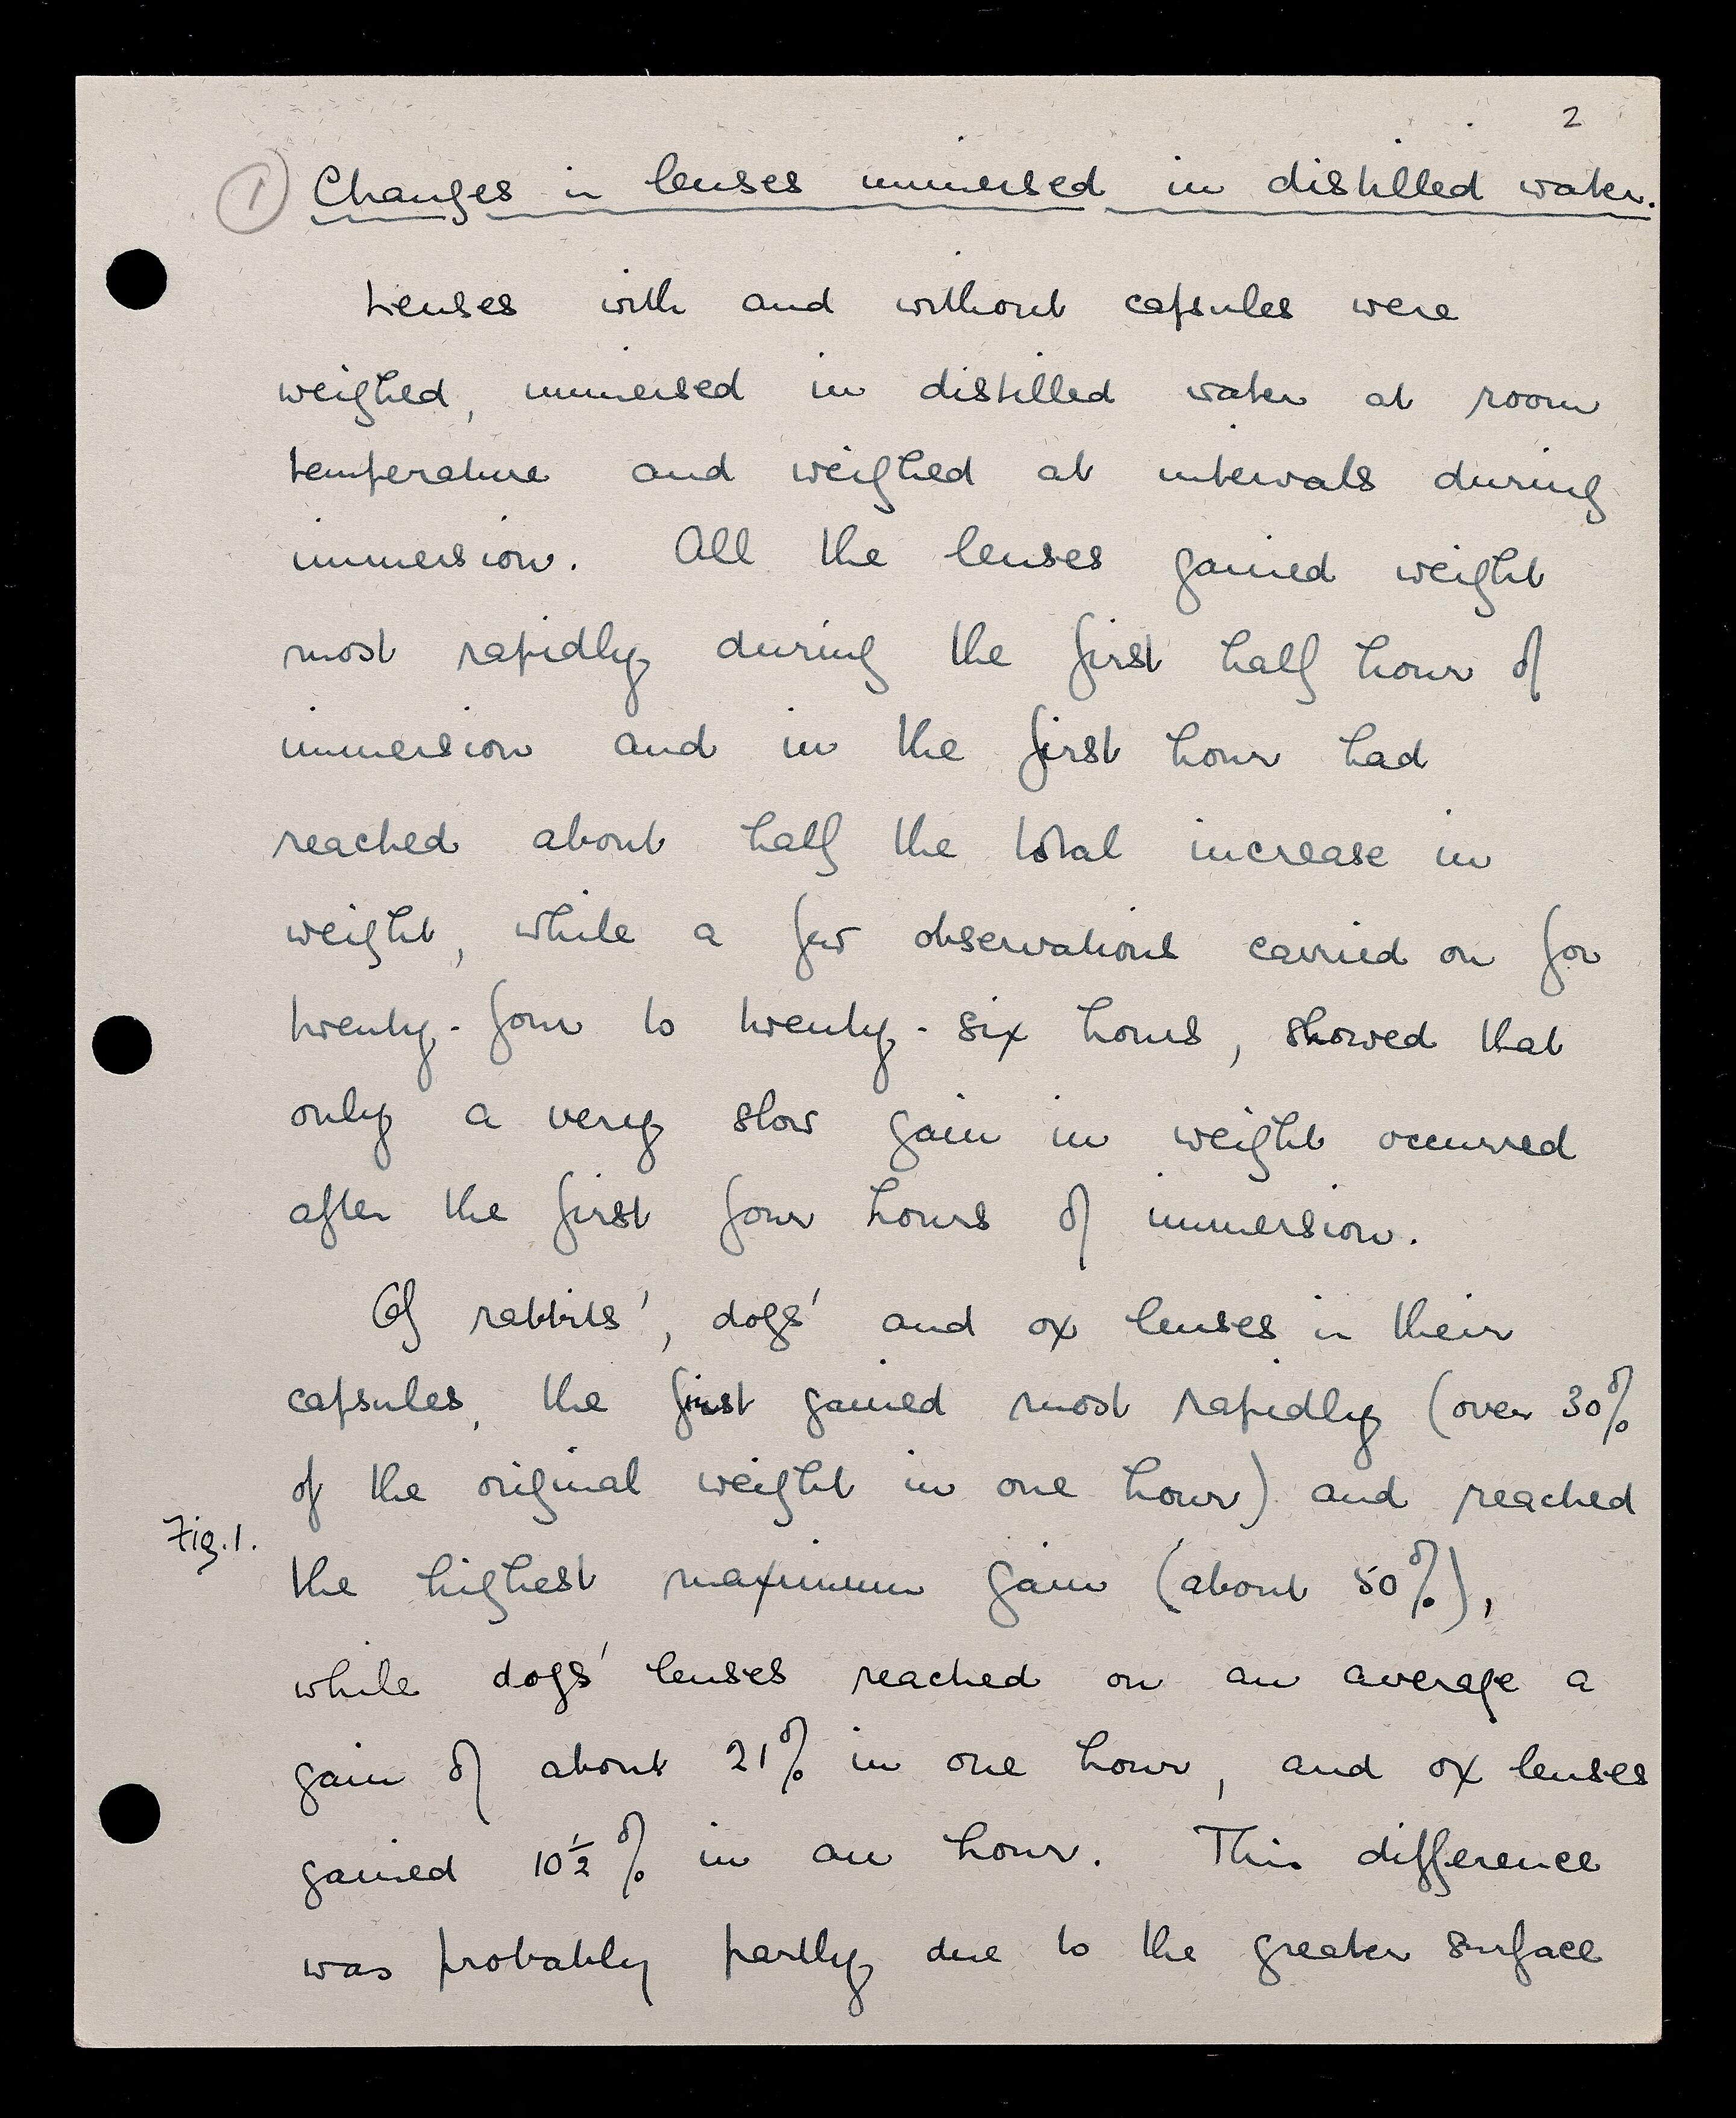 2
① Changes in lenses immersed in distilled water.
Lenses with and without capsules were
weighed, immersed in distilled water at room
temperature and weighed at intervals during
immersion. All the lenses gained weight
most rapidly during the first half hour of
immersion and in the first hour had
reached about half the total increase in
weight, while a few observations carried on for
twenty-four to twenty-six hours, showed that
only a very slow gain in weight occurred
after the first four hours of immersion.
Of rabbits', dogs' and ox lenses in their
capsules, the first gained most rapidly (over 30%
of the original weight in one hour) and reached
Fig. 1.
the highest maximum gain (about 50%),
while dogs' lenses reached on an average a
gain of about 21% in one hour, and ox lenses
gained 10½% in an hour. This difference
was probably partly due to the greater surface